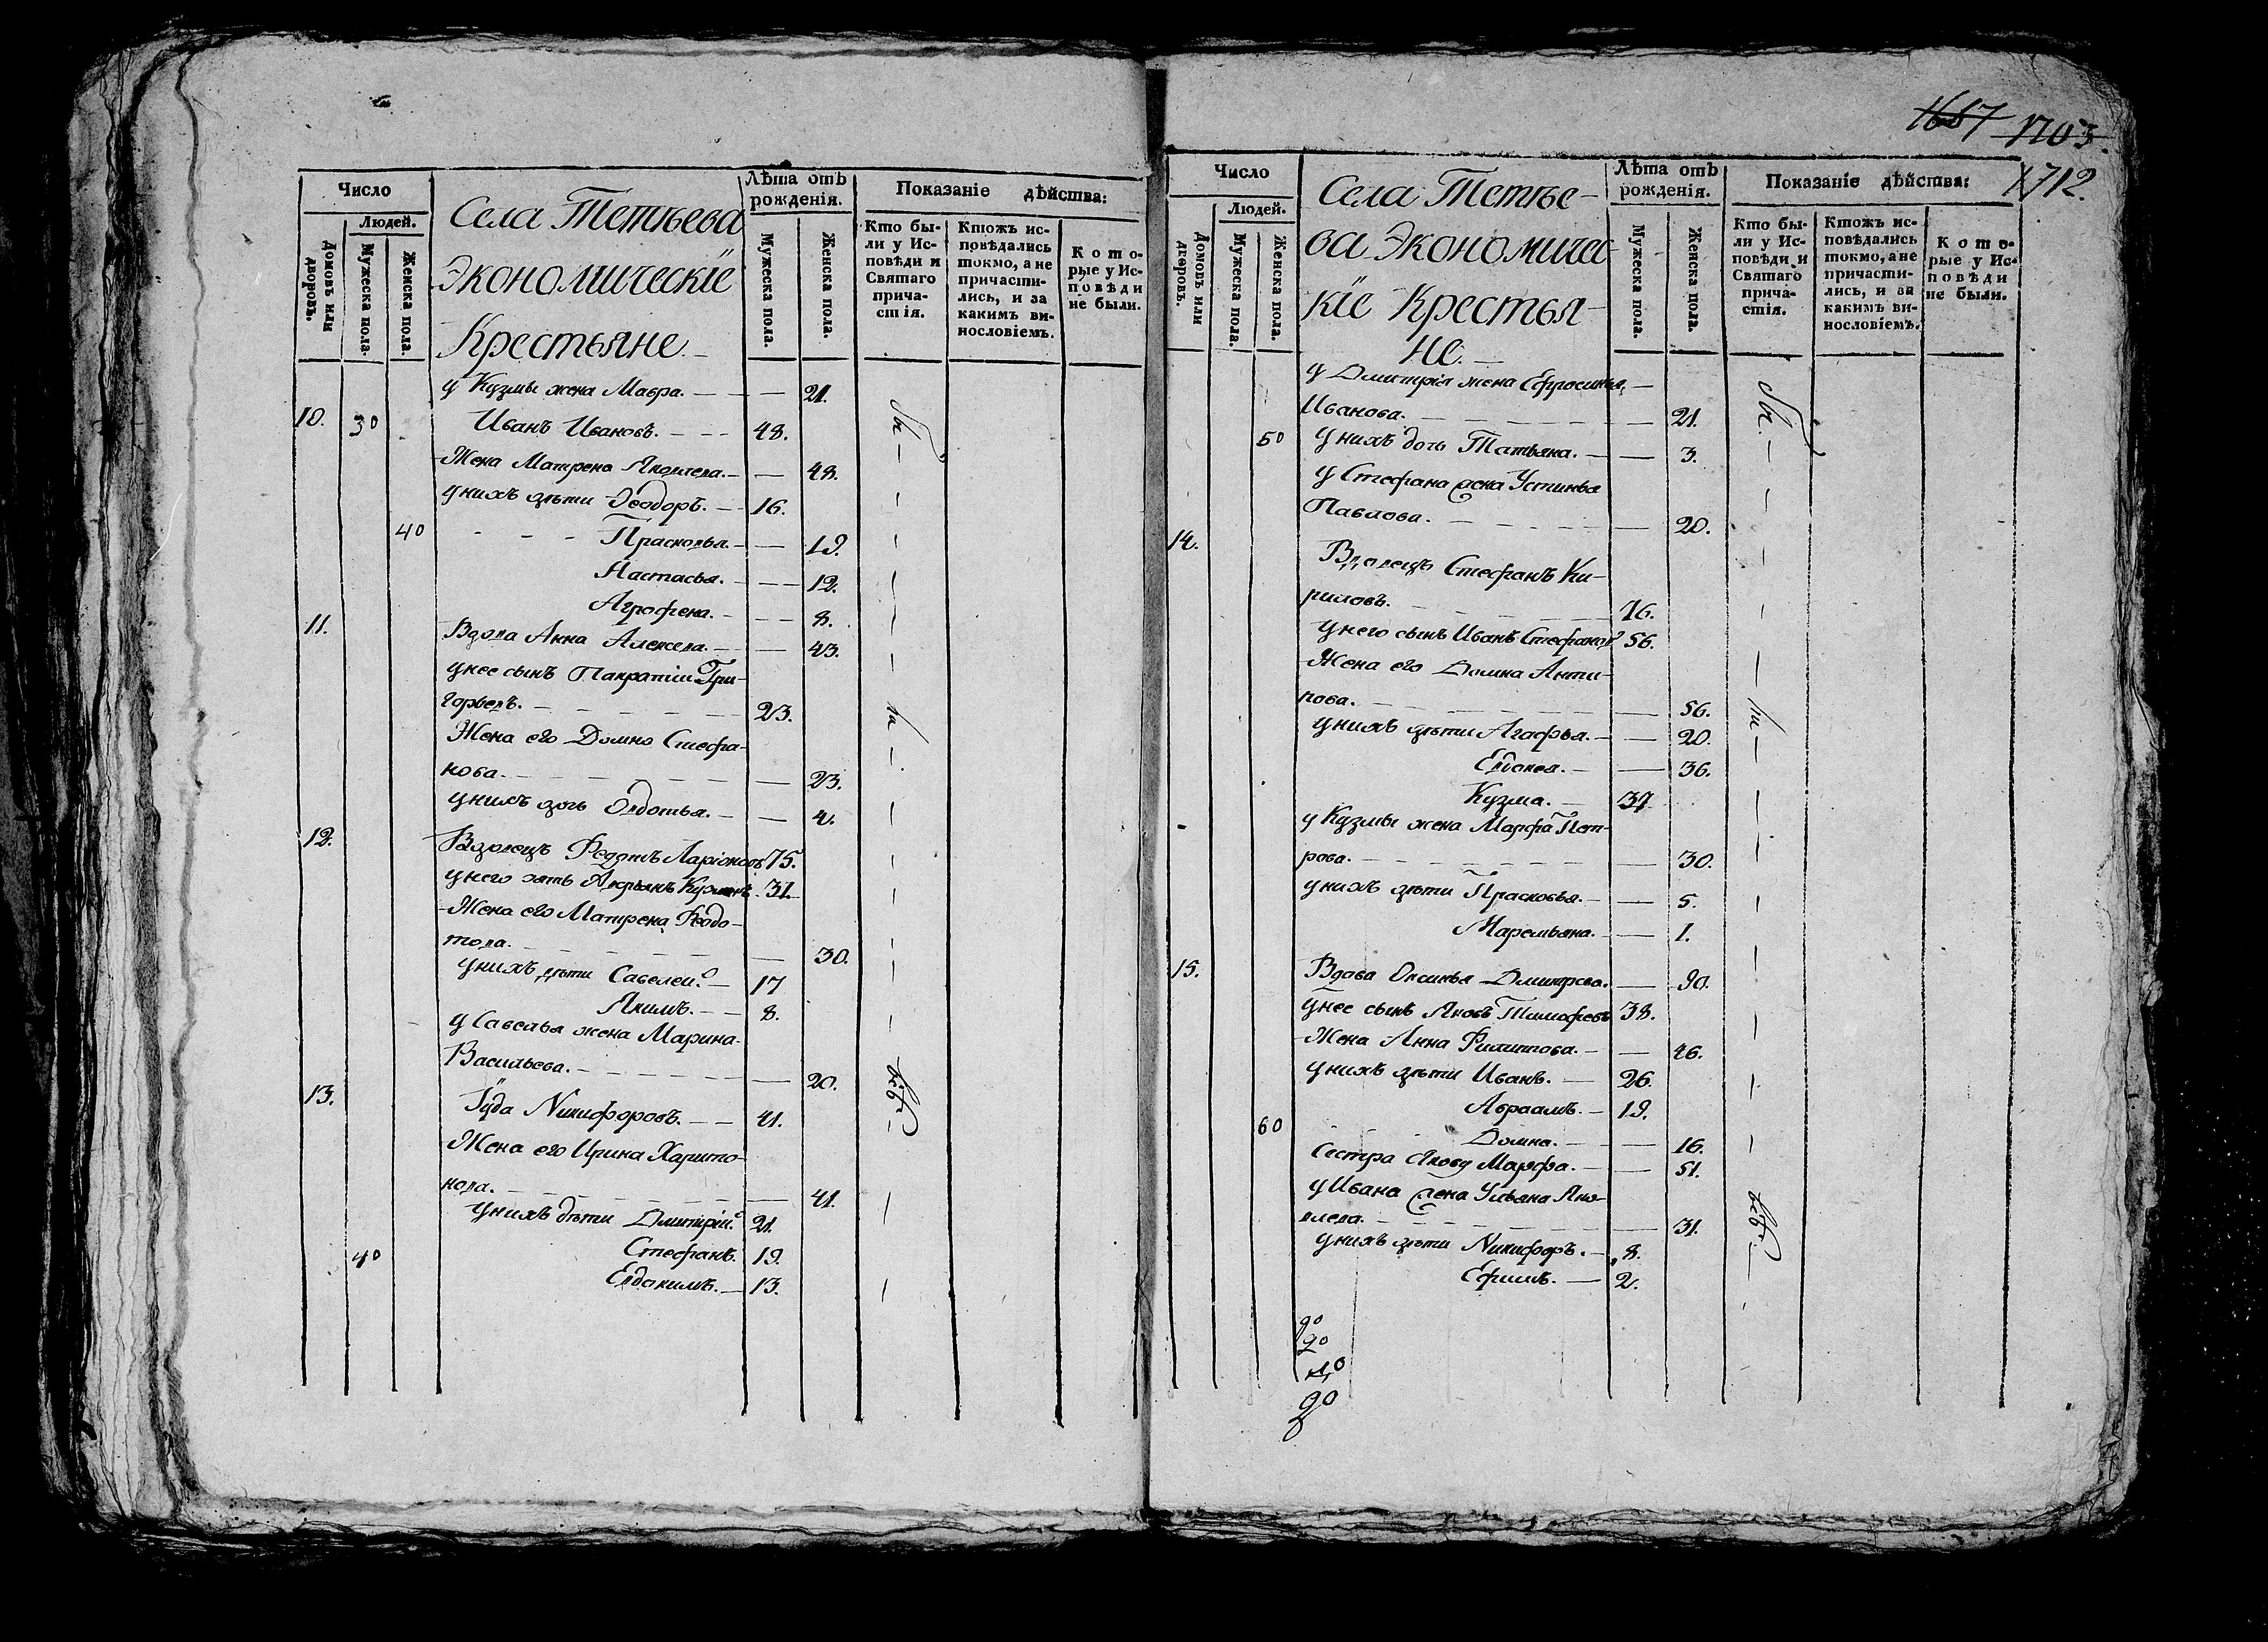 Число
Людей.
Домовъ или дворовъ.
Мужеска пола.
Женска пола.
Села Тетѣева
Экономическіе
Крестьяне.
Лѣта отъ рожденія.
Мужеска пола.
Женска пола.
Показаніе дѣйства:
Кто бы-
ли у Ис-
повѣди и
Святаго
прича-
стія.
Ктожъ ис-
повѣдались
токмо, а не
причасти-
лись, и за
какимъ ви-
нословіемъ.
Кото-
рые у Ис-
повѣди
не были.
у Кузмы жена Мавра. — — — 21.
10. 30 Иванъ Ивановъ. — — — 48.
Жена Матрена Яковлева. — — 48.
у нихъ дѣти Ѳеодоръ. — 16.
40 - - - Прасковья. — — 19.
Настасья. — — 12.
Агрофена. — — 8.
11. Вдова Анна Алексева. — — 43.
у нее сынъ Панратіи Гри-
горьевъ. — — — 23.
Жена его Домна Стефа-
нова. — — — 23.
у нихъ дочь Овдотья. — — 4.
12. Вдовецъ Федотъ Ларіоновъ 75.
у него зять 31.
Жена его Матрена Федо-
това. — — 30.
у нихъ дѣти Савелеи. — 17
Якимъ. — — 8.
у Савелья жена Марина
Васильева. — — — 20.
13. Іуда Никифоровъ. — — 41.
Жена его Ирина Харито-
нова. — — — 41.
у нихъ дѣти Дмитріи. 21.
40 Стефанъ. 19.
Евдокимъ. — 13.
1687 1703.
1712.
Число
Людей.
Домовъ или дворовъ.
Мужеска пола.
Женска пола.
Села Тетѣе-
ва Экономичес-
кіе Крестья-
не.
Лѣта отъ рожденія.
Мужеска пола.
Женска пола.
Показаніе дѣйства:
Кто бы-
ли у Ис-
повѣди и
Святаго
прича-
стія.
Ктожъ ис-
повѣдались
токмо, а не
причасти-
лись, и за
какимъ ви-
нословіемъ.
Кото-
рые у Ис-
повѣди
не были.
у Дмитрія жена Ефросинья
Иванова. — — — 21.
50 у нихъ дочь Татьяна. — — 3.
у Стефана жена Устинья
Павлова. — — — 20.
14. Вдовецъ Стефанъ Ки-
риловъ. — — — 76.
у него сынъ Иванъ Стефановъ 56.
Жена его Домна Анти-
пова. — — — 56.
у нихъ дѣти Агафья. — — 20.
Евдокея. — — 36.
Кузма. — 37
у Кузмы жена Марфа Пет-
рова. — — — 30.
у нихъ дѣти Прасковья. — — 5.
Маремьяна. — — 1.
15. Вдова Оксинья Дмитрева. — 90.
у нее сынъ Яковъ Тимофеевъ 38.
Жена Анна Филиппова. — — 46.
у нихъ дѣти Иванъ. — 26.
Авраамъ. — 19.
60 Домна. — — 16.
Сестра Якову Марфа. — — 51.
у Ивана жена Ульяна Яко-
влева. — — — 31.
у нихъ дѣти Никифоръ. — 8.
Ефимъ. — 2.